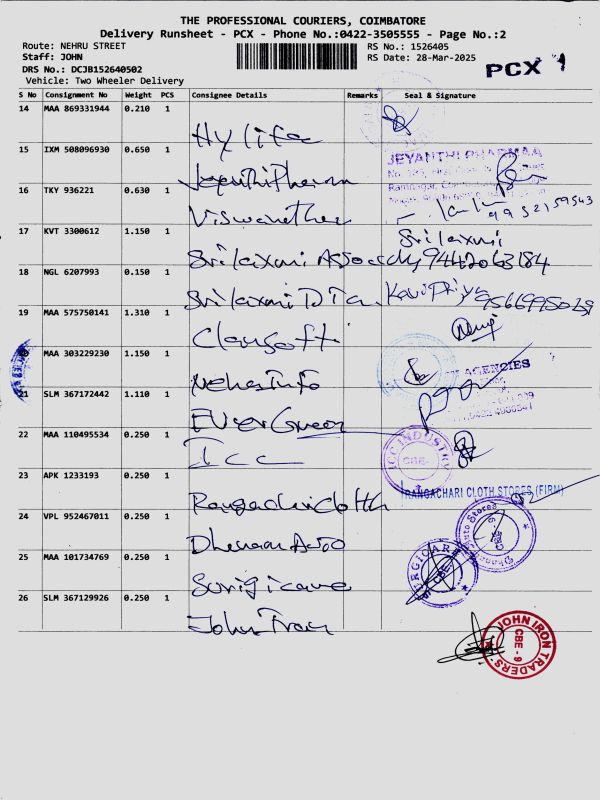 THE PROFESSIONAL COURIERS, COIMBATORE
Delivery Runsheet - PCX - Phone No.:0422-3505555 - Page No.:2
Route: NEHRU STREET
RS No.: 1526405
Staff: JOHN
RS Date: 28-Mar-2025
DRS No.: DCJB152640502
PCX 1
Vehicle: Two Wheeler Delivery
S No Consignment No Weight PCS Consignee Details Remarks Seal & Signature
14 MAA 869331944 0.210 1
Hylife
15 IXM 508096930 0.650 1
JEYANTHI PHARMAA
Jeyanthi Pharma
16 TKY 936221 0.630 1
Viswanathan
9952159543
17 KVT 3300612 1.150 1
Srilaxmi
Srilaxmi Asso 9442063184
18 NGL 6207993 0.150 1
Srilaxmi Dia Kavi Priya 9566995029
19 MAA 575750141 1.310 1
Clansoft
20 MAA 303229230 1.150 1
AGENCIES
Neha Info
21 SLM 367172442 1.110 1
EverGreen
22 MAA 110495534 0.250 1
Icc
ICC INDUSTRY
CBE-
23 APK 1233193 0.250 1
RANGACHARI CLOTH STORES (FIRM)
Rangachari cloth
24 VPL 952467011 0.250 1
Dhanam Auto
Auto Stores
CBE-9
25 MAA 101734769 0.250 1
Surigicare
SURGICARE
CBE
26 SLM 367129926 0.250 1
John Iron
JOHN IRON TRADERS
CBE - 9